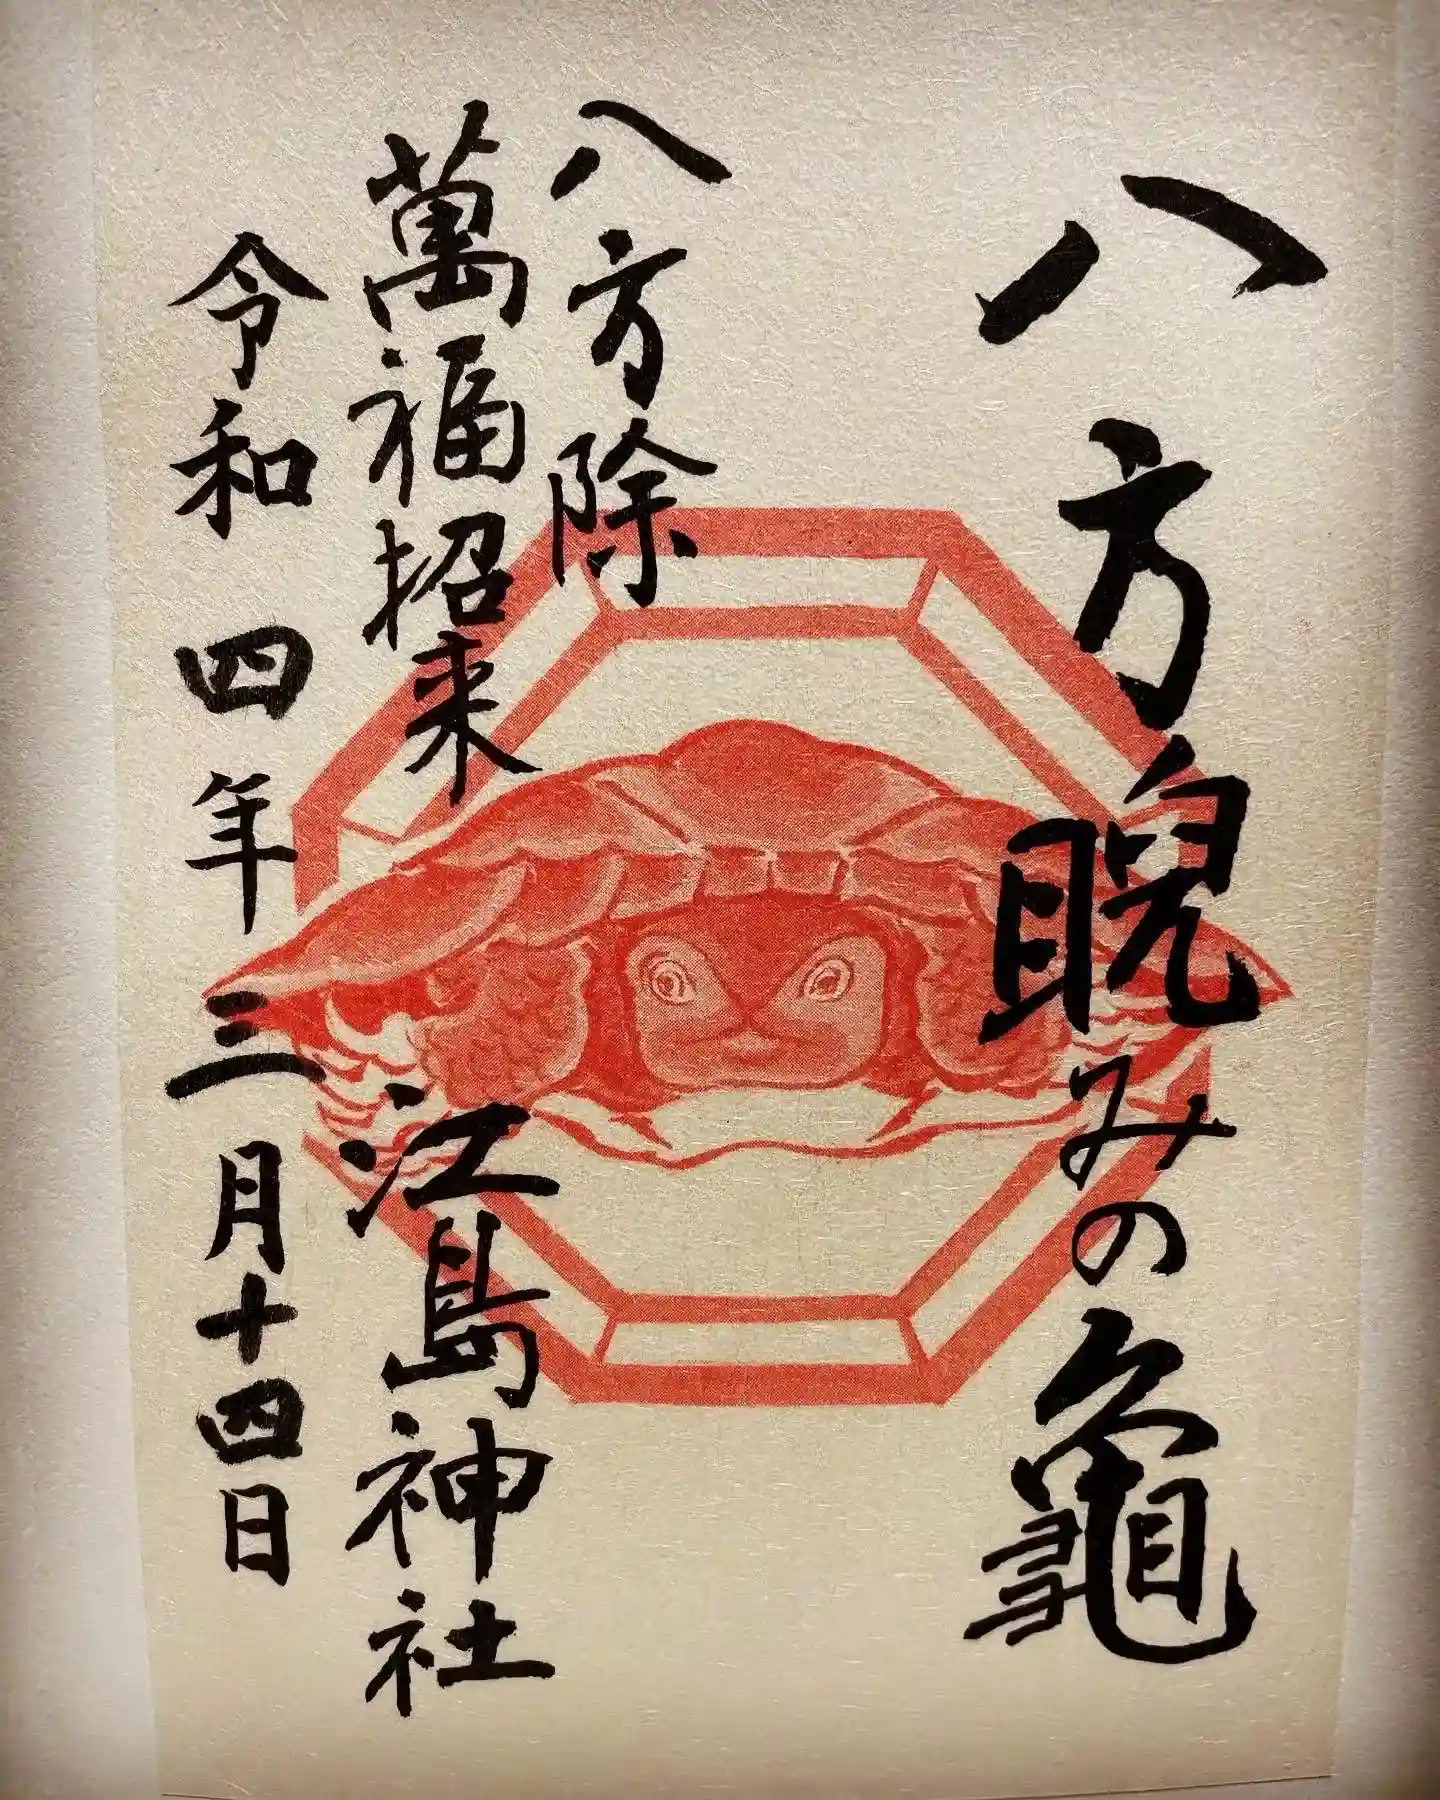 八方睨みの龜
八方除
萬福招来
江島神社
令和四年三月十四日